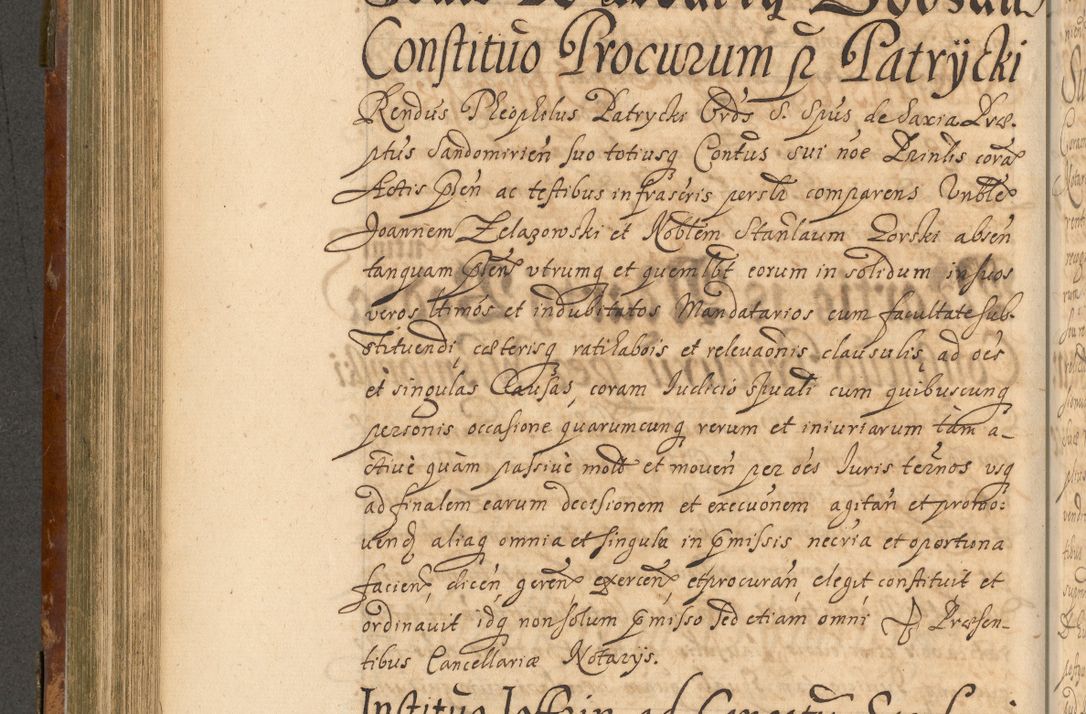 Constituo Procurum p Patrÿcki
Rendus Theophilus Patrycki Ords S. Spus de Saxia Præ-
ptus Sandomirien suo totiusq Contus sui noe Prinlis cora
Actis pten ac testibus infrascris persłr comparens Vnble
Joannem Zelazowski et Noblem Stanlaum Dorski absen
tanquam pten utrumq et quemlbt eorum in solidum in suos
veros ltimos et indubitatos Mandatarios cum facultate sub-
stituendi cæterisq ratihabois et relevaonis clausulis, ad oes
et singulas Causas, coram Iudicio spuali cum quibuscunq
personis occasione quarumcunq rerum et iniuriarum tam a-
ctivè quàm passivè mott et moven per oes Iuris ternos usq
ad finalem earum decisionem et execuonem agitan et promo:
uend aliaq omnia et singula in pmissis necria et oportuna
facien, dicen, geren exercen, et procuran elegit constituit et
ordinauit idq non solum pmisso sed etiam omni Præsen-
tibus Cancellariæ Notarijs.